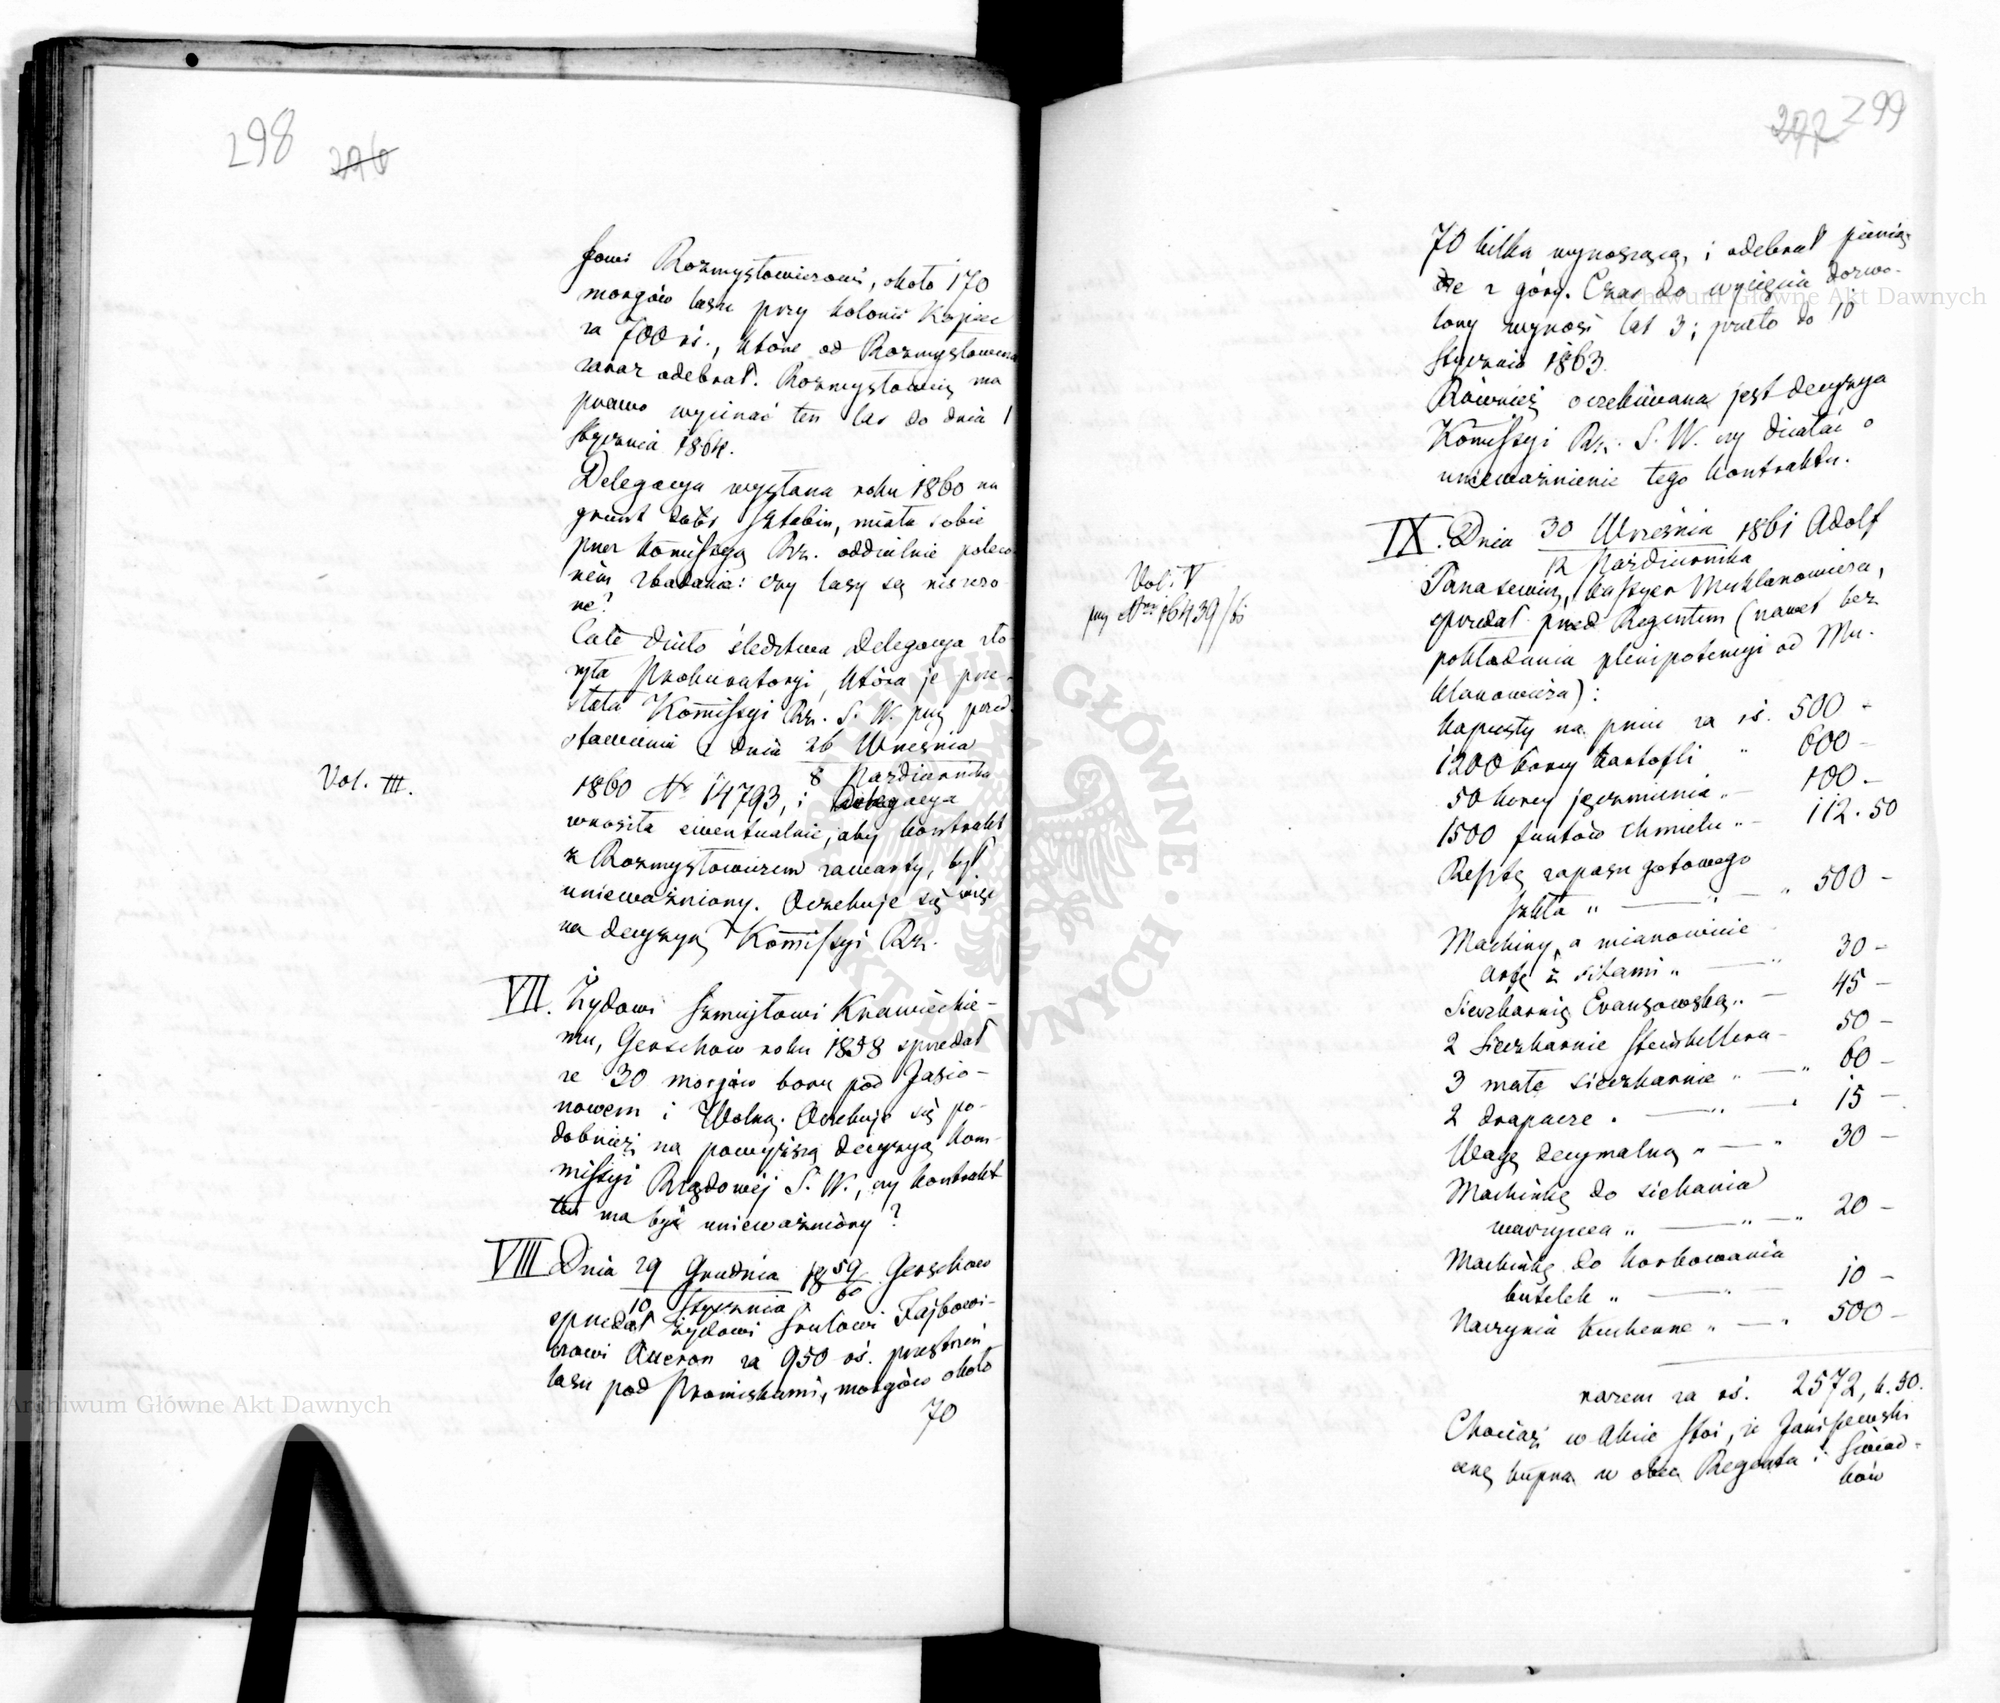 298 296
fowi Rozmysłowiczowi, około 170
morgów lasu przy kolonii Kopiec
za 700 rś., które od Rozmysłowicza
zaraz odebrał. Rozmysłowicz ma
prawo wycinać ten las do dnia 1
Stycznia 1864.
Delegacya wysłana roku 1860 na
grunt dóbr Sztabin, miała sobie
przez Kommissyą Rz. oddzielnie poleco-
ném zbadanie: czy lasy są niszczo-
ne?
Całe dzieło śledztwa Delegacya zło-
żyła Prokuratoryi, która je prze-
słała Kommissyi Rz. S. W. przy przed-
stawieniu z dnia 26 Września
8 Października
Vol. III.
1860 Nr 14793, i Delegacya
wnosiła ewentualnie, aby kontrakt
z Rozmysłowiczem zawarty, był
unieważniony. Oczekuje się więc
na decyzyą Kommissyi Rz.
VII. Żydowi Szmujłowi Krawieckie-
mu, Gerschow roku 1858 sprzedał
ze 30 morgów boru pod Jasio-
nowem i Wolną. Oczekuje się po-
dobnież na powyższą decyzyą Kom-
missyi Rządowéj S. W., czy kontrakt
ten ma być unieważniony?
VIII Dnia 29 Grudnia 1859 Gerschow
10 Stycznia 60
sprzedał żydowi Srulowi Fajbowi-
czowi Aueron za 950 rś. przestrzeń
lasu pod Promiskami, morgów około
70
297 299
70 kilka wynoszącą, i odebrał pienią-
dze z góry. Czas do wycięcia dozwo-
lony wynosi lat 3; przeto do 10
Stycznia 1863.
Również oczekiwana jest decyzya
Kommissyi Rz. S. W. czy działać o
unieważnienie tego kontraktu.
IX. Dnia 30 Września 1861 Adolf
12 Października
Vol. V
przy Nrze 16439/61
Tanasewicz, kassyer Muklanowicza,
sprzedał przed Regentem (nawet bez
pokładania plenipotencyi od Mu-
klanowicza):
kapusty na pniu za rś. 500 -
1200 korcy kartofli " 600 -
50 korcy jęczmienia " - 100 -
1500 funtów chmielu " - 112. 50
Resztę zapasu gotowego
szkła " — " 500 -
Machiny, a mianowicie
arfę z sitami " — " 30 -
Sieczkarnię Evansowską " - 45 -
2 Sieczkarnie Steinkellera - 50 -
3 małe sieczkarnie " — " 60 -
2 drapacze . — " — " 15 -
Wagę decymalną " — " 30 -
Machinkę do siekania
warzywa " — " — " 20 -
Machinkę do korkowania
butelek " — " 10 -
Naczynia kuchenne " — " 500 -
razem za rś. 2572, k. 50.
Chociaż w akcie stoi, że Janiszewski
cenę kupna w obec Regenta i świad-
ków
Archiwum Główne Akt Dawnych
Archiwum Główne Akt Dawnych